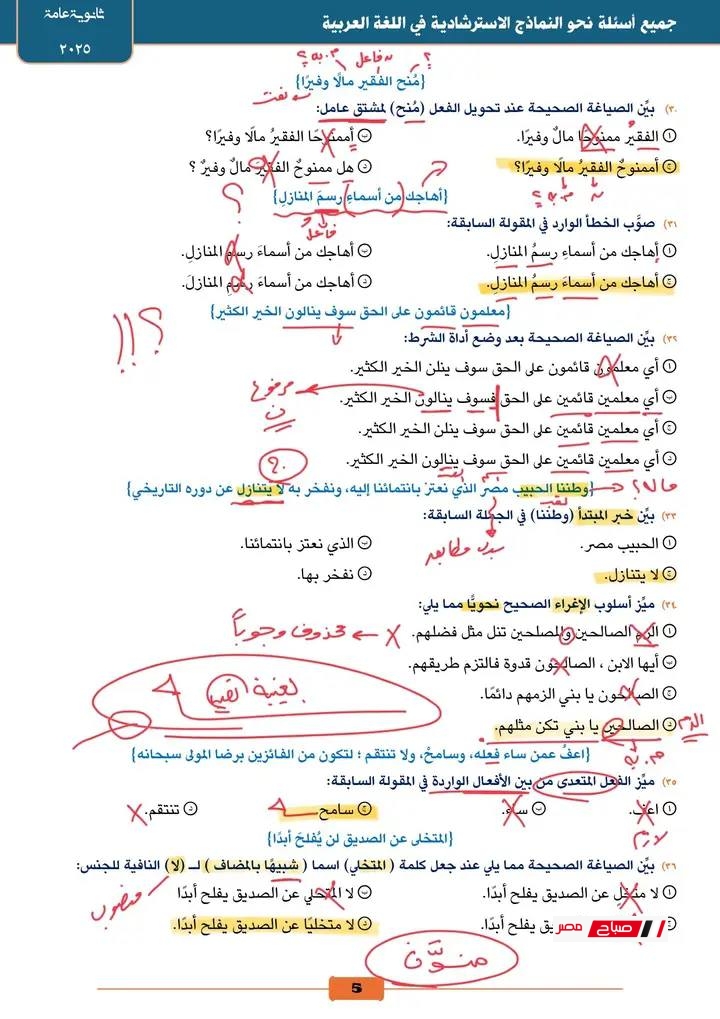 ثانوية عامة
جميع أسئلة نحو النماذج الاسترشادية في اللغة العربية
٢٠٢٥
م. به ؟
نـ فاعل
{مُنح الفقير مالًا وفيرًا}
نعت
(٣٠ بيِّن الصياغة الصحيحة عند تحويل الفعل (مُنح) لمشتق عامل:
أ الفقيرُ ممنوحًا مالٌ وفيرًا. ب أممنوحًا الفقيرُ مالًا وفيرًا؟
ج أممنوحٌ الفقيرُ مالًا وفيرًا؟ د هل ممنوحٌ الفقيرَ مالٌ وفيرٌ ؟
{أهاجك من أسماءِ رسمَ المنازلِ}
؟
فاعل
(٣١ صوِّب الخطأ الوارد في المقولة السابقة:
أ إهاجك من أسماءِ رسمُ المنازلِ. ب أهاجك من أسماءَ رسمَ المنازلِ.
ج أهاجك من أسماءَ رسمُ المنازلِ. د أهاجك من أسماءَ رسمِ المنازلَ.
{معلمون قائمون على الحق سوف ينالون الخير الكثير}
؟ !!
(٣٢ بيِّن الصياغة الصحيحة بعد وضع أداة الشرط:
أ أي معلمون قائمون على الحق سوف ينلن الخير الكثير.
ب أي معلمين قائمين على الحق فسوف ينالون الخير الكثير.
مرفوع
ن
ج أي معلمين قائمين على الحق سوف ينلن الخير الكثير.
د أي معلمين قائمين على الحق سوف ينالون الخير الكثير.
{وطننا الحبيب مصرُ الذي نعتز بانتمائنا إليه، ونفخر به لا يتنازل عن دوره التاريخي}
ماله؟
نعت
(٣٣ بيِّن خبر المبتدأ (وطننا) في الجملة السابقة:
أ الحبيب مصر. ب الذي نعتز بانتمائنا.
بدل مطابق
ج لا يتنازل. د نفخر بها.
(٣٤ ميِّز أسلوب الإغراء الصحيح نحويًّا مما يلي:
أ الزم الصالحين والمصلحين تنل مثل فضلهم.
محذوف وجوباً
ب أيها الابن ، الصالحون قدوة فالتزم طريقهم.
ج الصالحون يا بني الزمهم دائمًا.
د الصالحين يا بني تكن مثلهم.
الزم
م. به
{اعفُ عمن ساء فعله، وسامحْ، ولا تنتقم ؛ لتكون من الفائزين برضا المولى سبحانه}
(٣٥ ميِّز الفعل المتعدى من بين الأفعال الواردة في المقولة السابقة:
أ اعف. ب ساء. ج سامح د تنتقم.
لازم
{المتخلى عن الصديق لن يُفلحَ أبدًا}
(٣٦ بيِّن الصياغة الصحيحة مما يلي عند جعل كلمة ( المتخلي) اسما ( شبيهًا بالمضاف ) لـ (لا) النافية للجنس:
أ لا متخلِ عن الصديق يفلح أبدًا. ب لا المتخلي عن الصديق يفلح أبدًا
منصوب
يق يفلح أبدًا. د لا متخليًا عن الصديق يفلح أبدًا.
صباح مصر
منوَّن
5